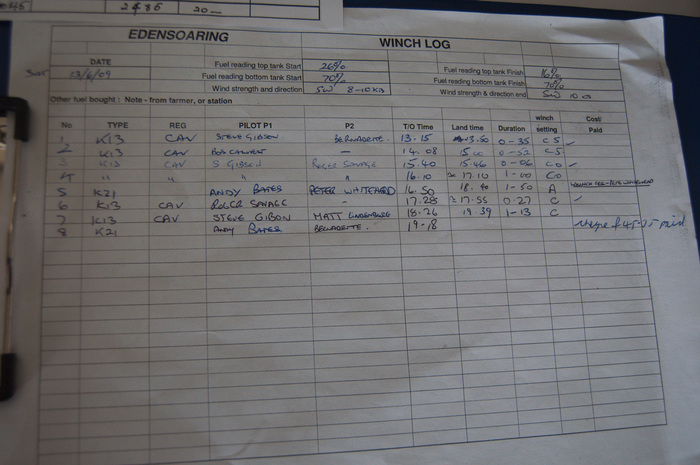 2486 20—
EDENSOARING WINCH LOG
DATE Fuel reading top tank Start 26% Fuel reading top tank Finish 16%
13/6/09 Fuel reading bottom tank Start 70% Fuel reading bottom tank Finish 70%
Wind strength and direction SW 8-10 Kts Wind strength & direction end SW 10 Kts
Other fuel bought : Note - from farmer, or station
No TYPE REG PILOT P1 P2 T/O Time Land time Duration winch setting Cost/ Paid
1 K13 CAV STEVE GIBSON BERNADETTE. 13.15 13.50 0-35 CS ✓
2 K13 CAV — 14.08 15.00 0-52 CS
3 K13 CAV S GIBSON ROGER SAVAGE 15.40 15.46 0-06 CO ✓
4 " " " " 16.10 17.10 1-00 CO
5 K21 ANDY BATES PETER WHITEHEAD 16.50 18.40 1-50 A
6 K13 CAV ROGER SAVAGE - 17.28 17.55 0.27 C ✓
7 K13 CAV STEVE GIBSON MATT 18.26 19.39 1-13 C
8 K21 ANDY BATES BERNADETTE. 19-18 paid